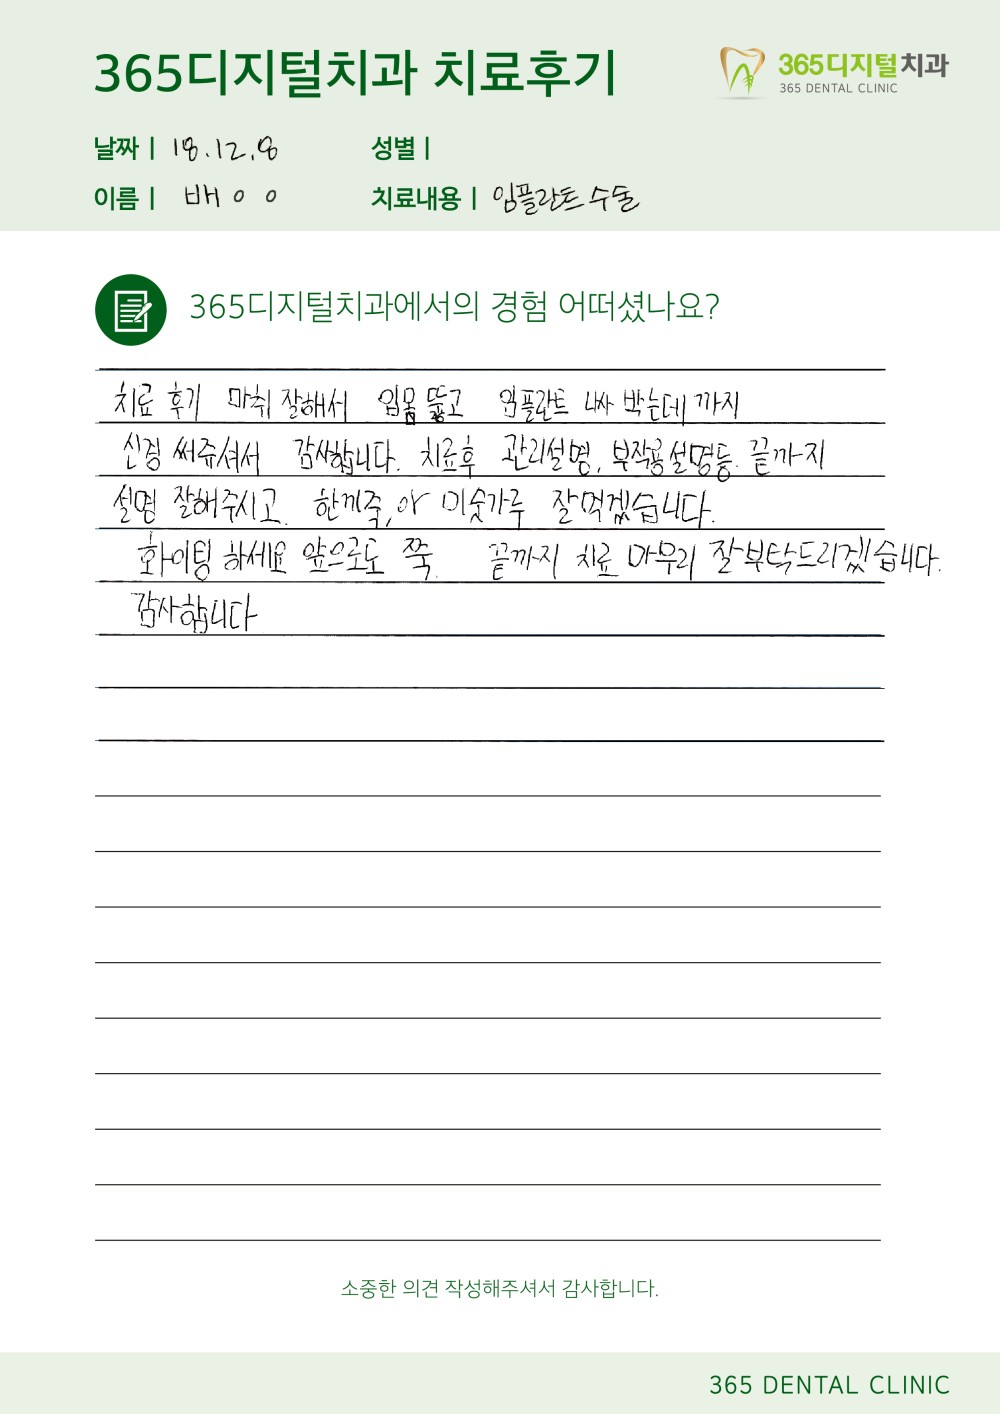 365디지털치과 치료후기
365디지털치과
365 DENTAL CLINIC
날짜 | 18.12.8 성별 |
이름 | 배ㅇㅇ 치료내용 | 임플란트 수술
365디지털치과에서의 경험 어떠셨나요?
치료 후기 마취 잘해서 잇몸 뚫고 임플란트 나사 박는데 까지
신경 써쥬셔서 감사합니다. 치료후 관리설명, 부작용설명등. 끝까지
설명 잘해주시고. 한끼죽, 미숫가루 잘먹겠습니다.
화이팅 하세요 앞으로도 쭉. 끝까지 치료 마무리 잘부탁드리겠습니다.
감사합니다
소중한 의견 작성해주셔서 감사합니다.
365 DENTAL CLINIC